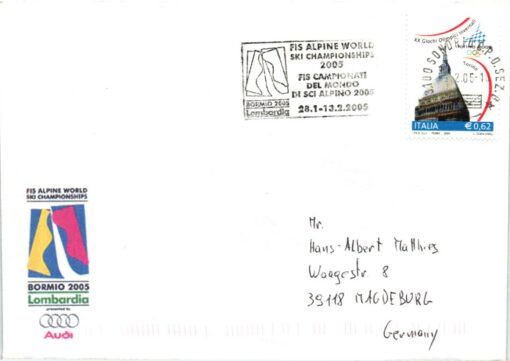 FIS ALPINE WORLD
SKI CHAMPIONSHIPS
2005
FIS CAMPIONATI
DEL MONDO
DI SCI ALPINO 2005
28.1-13.2.2005
BORMIO 2005
Lombardia
XX Giochi Olimpici Invernali
Torino
ITALIA
€0,62
FIS ALPINE WORLD
SKI CHAMPIONSHIPS
BORMIO 2005
Lombardia
presented by
Audi
Mr.
Hans-Albert Matthies
Waagestr. 8
39118 MAGDEBURG
Germany